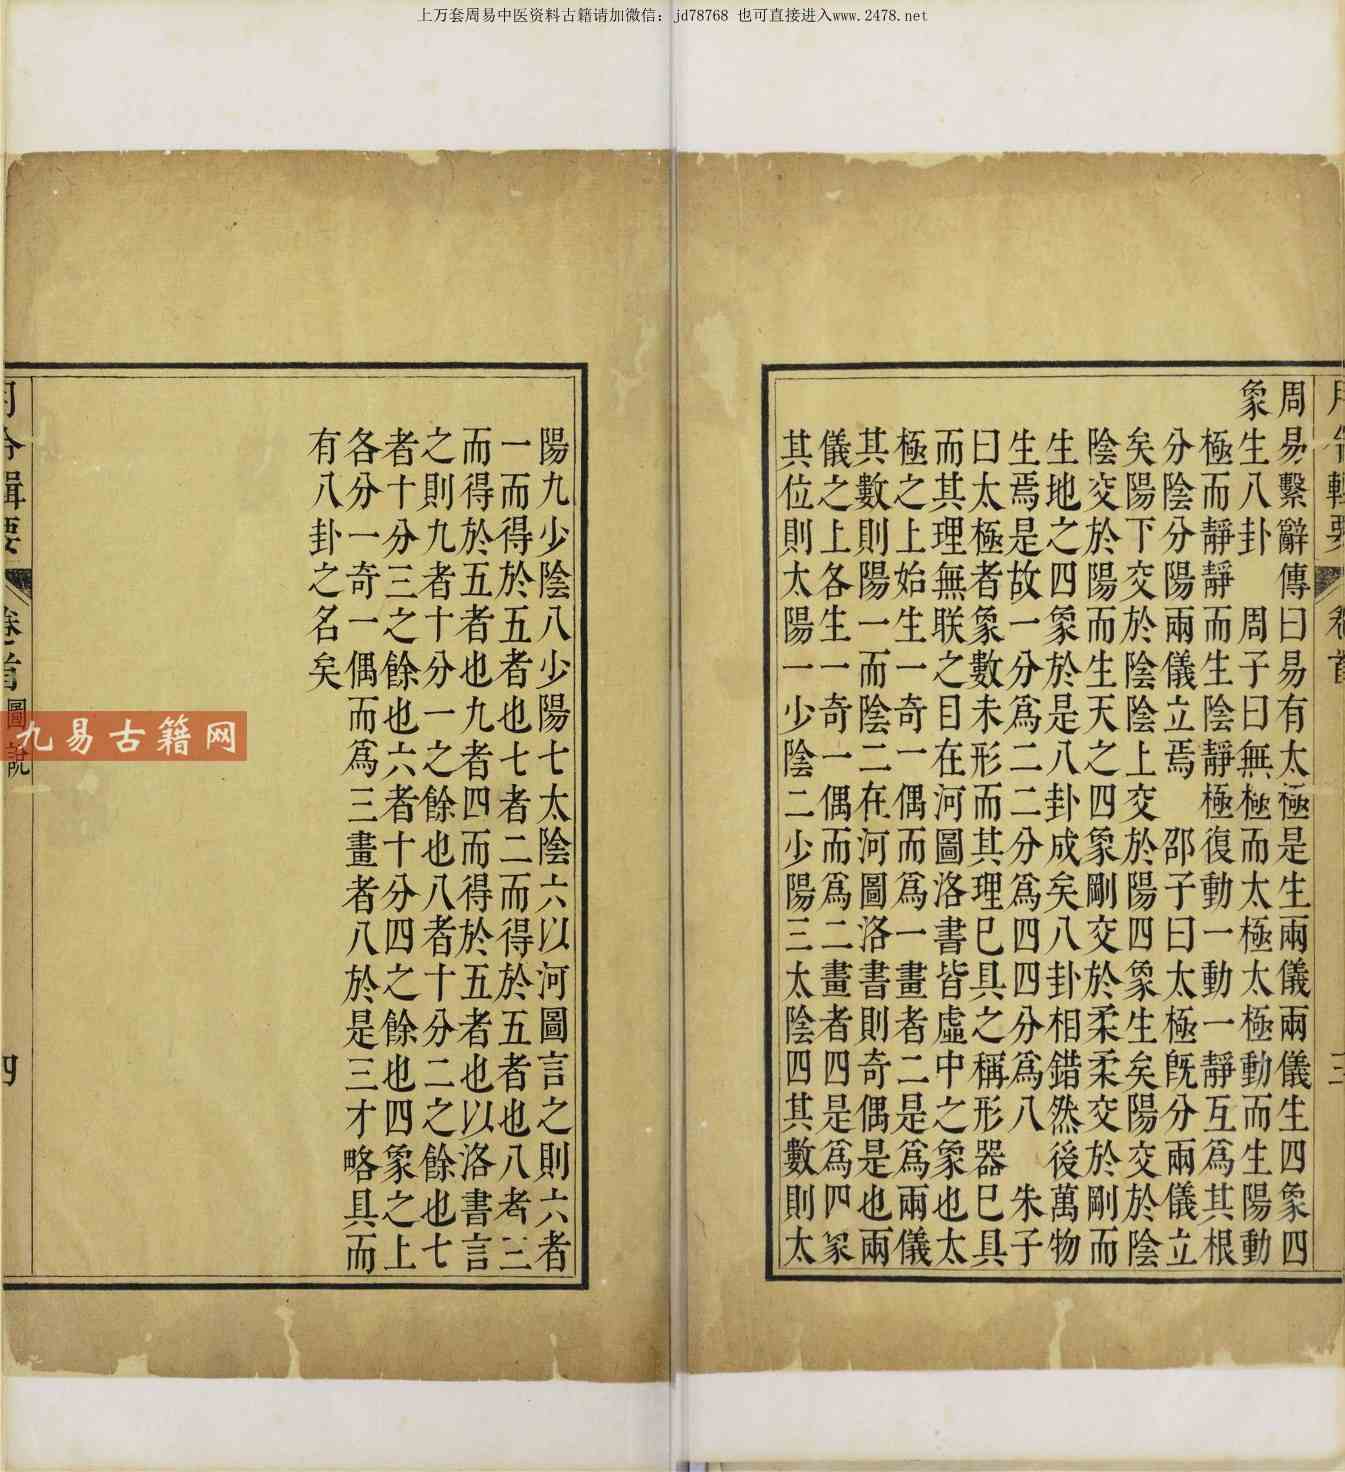 上万套周易中医资料古籍请加微信：jd78768 也可直接进入www.2478.net
周易繫辭傳曰易有太極是生兩儀兩儀生四象四
象生八卦　周子曰無極而太極太極動而生陽動
極而靜靜而生陰靜極復動一動一靜互爲其根
分陰分陽兩儀立焉　邵子曰太極旣分兩儀立
矣陽下交於陰陰上交於陽四象生矣陽交於陰
陰交於陽而生天之四象剛交於柔柔交於剛而
生地之四象於是八卦成矣八卦相錯然後萬物
生焉是故一分爲二二分爲四四分爲八　朱子
曰太極者象數未形而其理已具之稱形器已具
而其理無朕之目在河圖洛書皆虛中之象也太
極之上始生一奇一偶而爲一畫者二是爲兩儀
其數則陽一而陰二在河圖洛書則奇偶是也兩
儀之上各生一奇一偶而爲二畫者四是爲四象
其位則太陽一少陰二少陽三太陰四其數則太
陽九少陰八少陽七太陰六以河圖言之則六者
一而得於五者也七者二而得於五者也八者三
而得於五者也九者四而得於五者也以洛書言
之則九者十分一之餘也八者十分二之餘也七
者十分三之餘也六者十分四之餘也四象之上
各分一奇一偶而爲三畫者八於是三才略具而
有八卦之名矣
卷首
圖說
四
九易古籍网